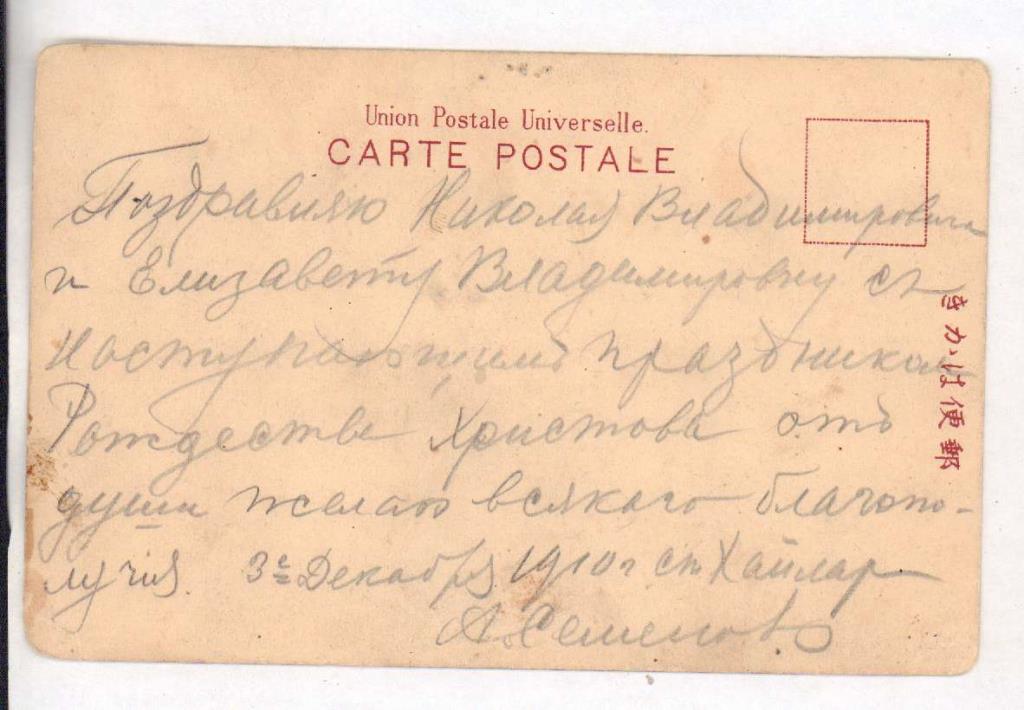 Union Postale Universelle.
CARTE POSTALE
Поздравляю Николая Владимировича
и Елизавету Владимировну съ
наступающимъ праздникомъ
Рождества Христова отъ
души желаю всякого благопо-
лучия. 3го Декабря 1910г ст Хайлар
А. Семеновъ
きかは便郵